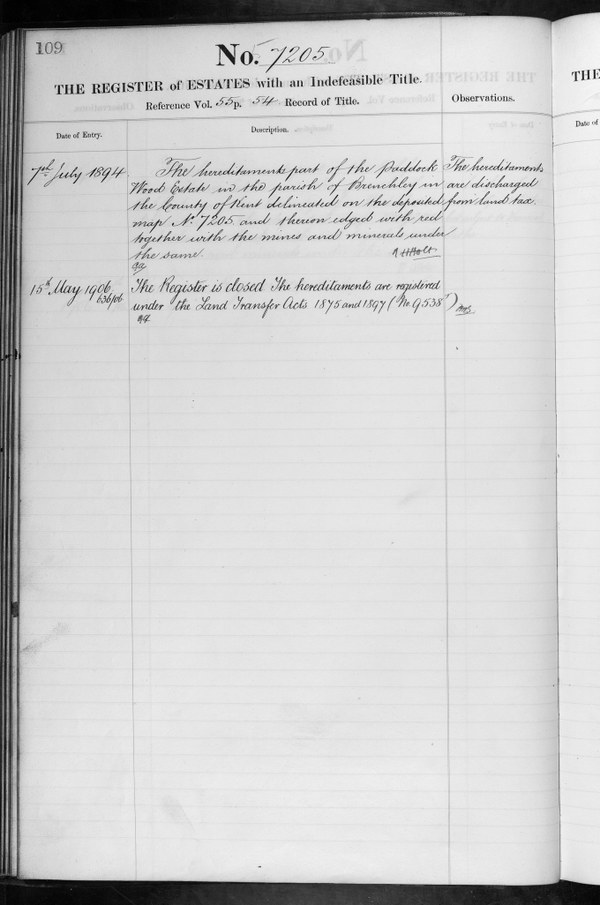 109
No. 7205
THE REGISTER of ESTATES with an Indefeasible Title.
Reference Vol. 55 p. 54 Record of Title.
Observations.
Date of Entry.
Description.
7th July 1894
The hereditaments part of the Paddock
Wood Estate in the parish of Brenchley in
the County of Kent delineated on the deposited
map No. 7205 and thereon edged with red
together with the mines and minerals under
the same.
The hereditaments
are discharged
from land tax.
15th May 1906
636/06
The Register is closed The hereditaments are registered
under the Land Transfer Acts 1875 and 1897 (No. 9538)
THE
Date of